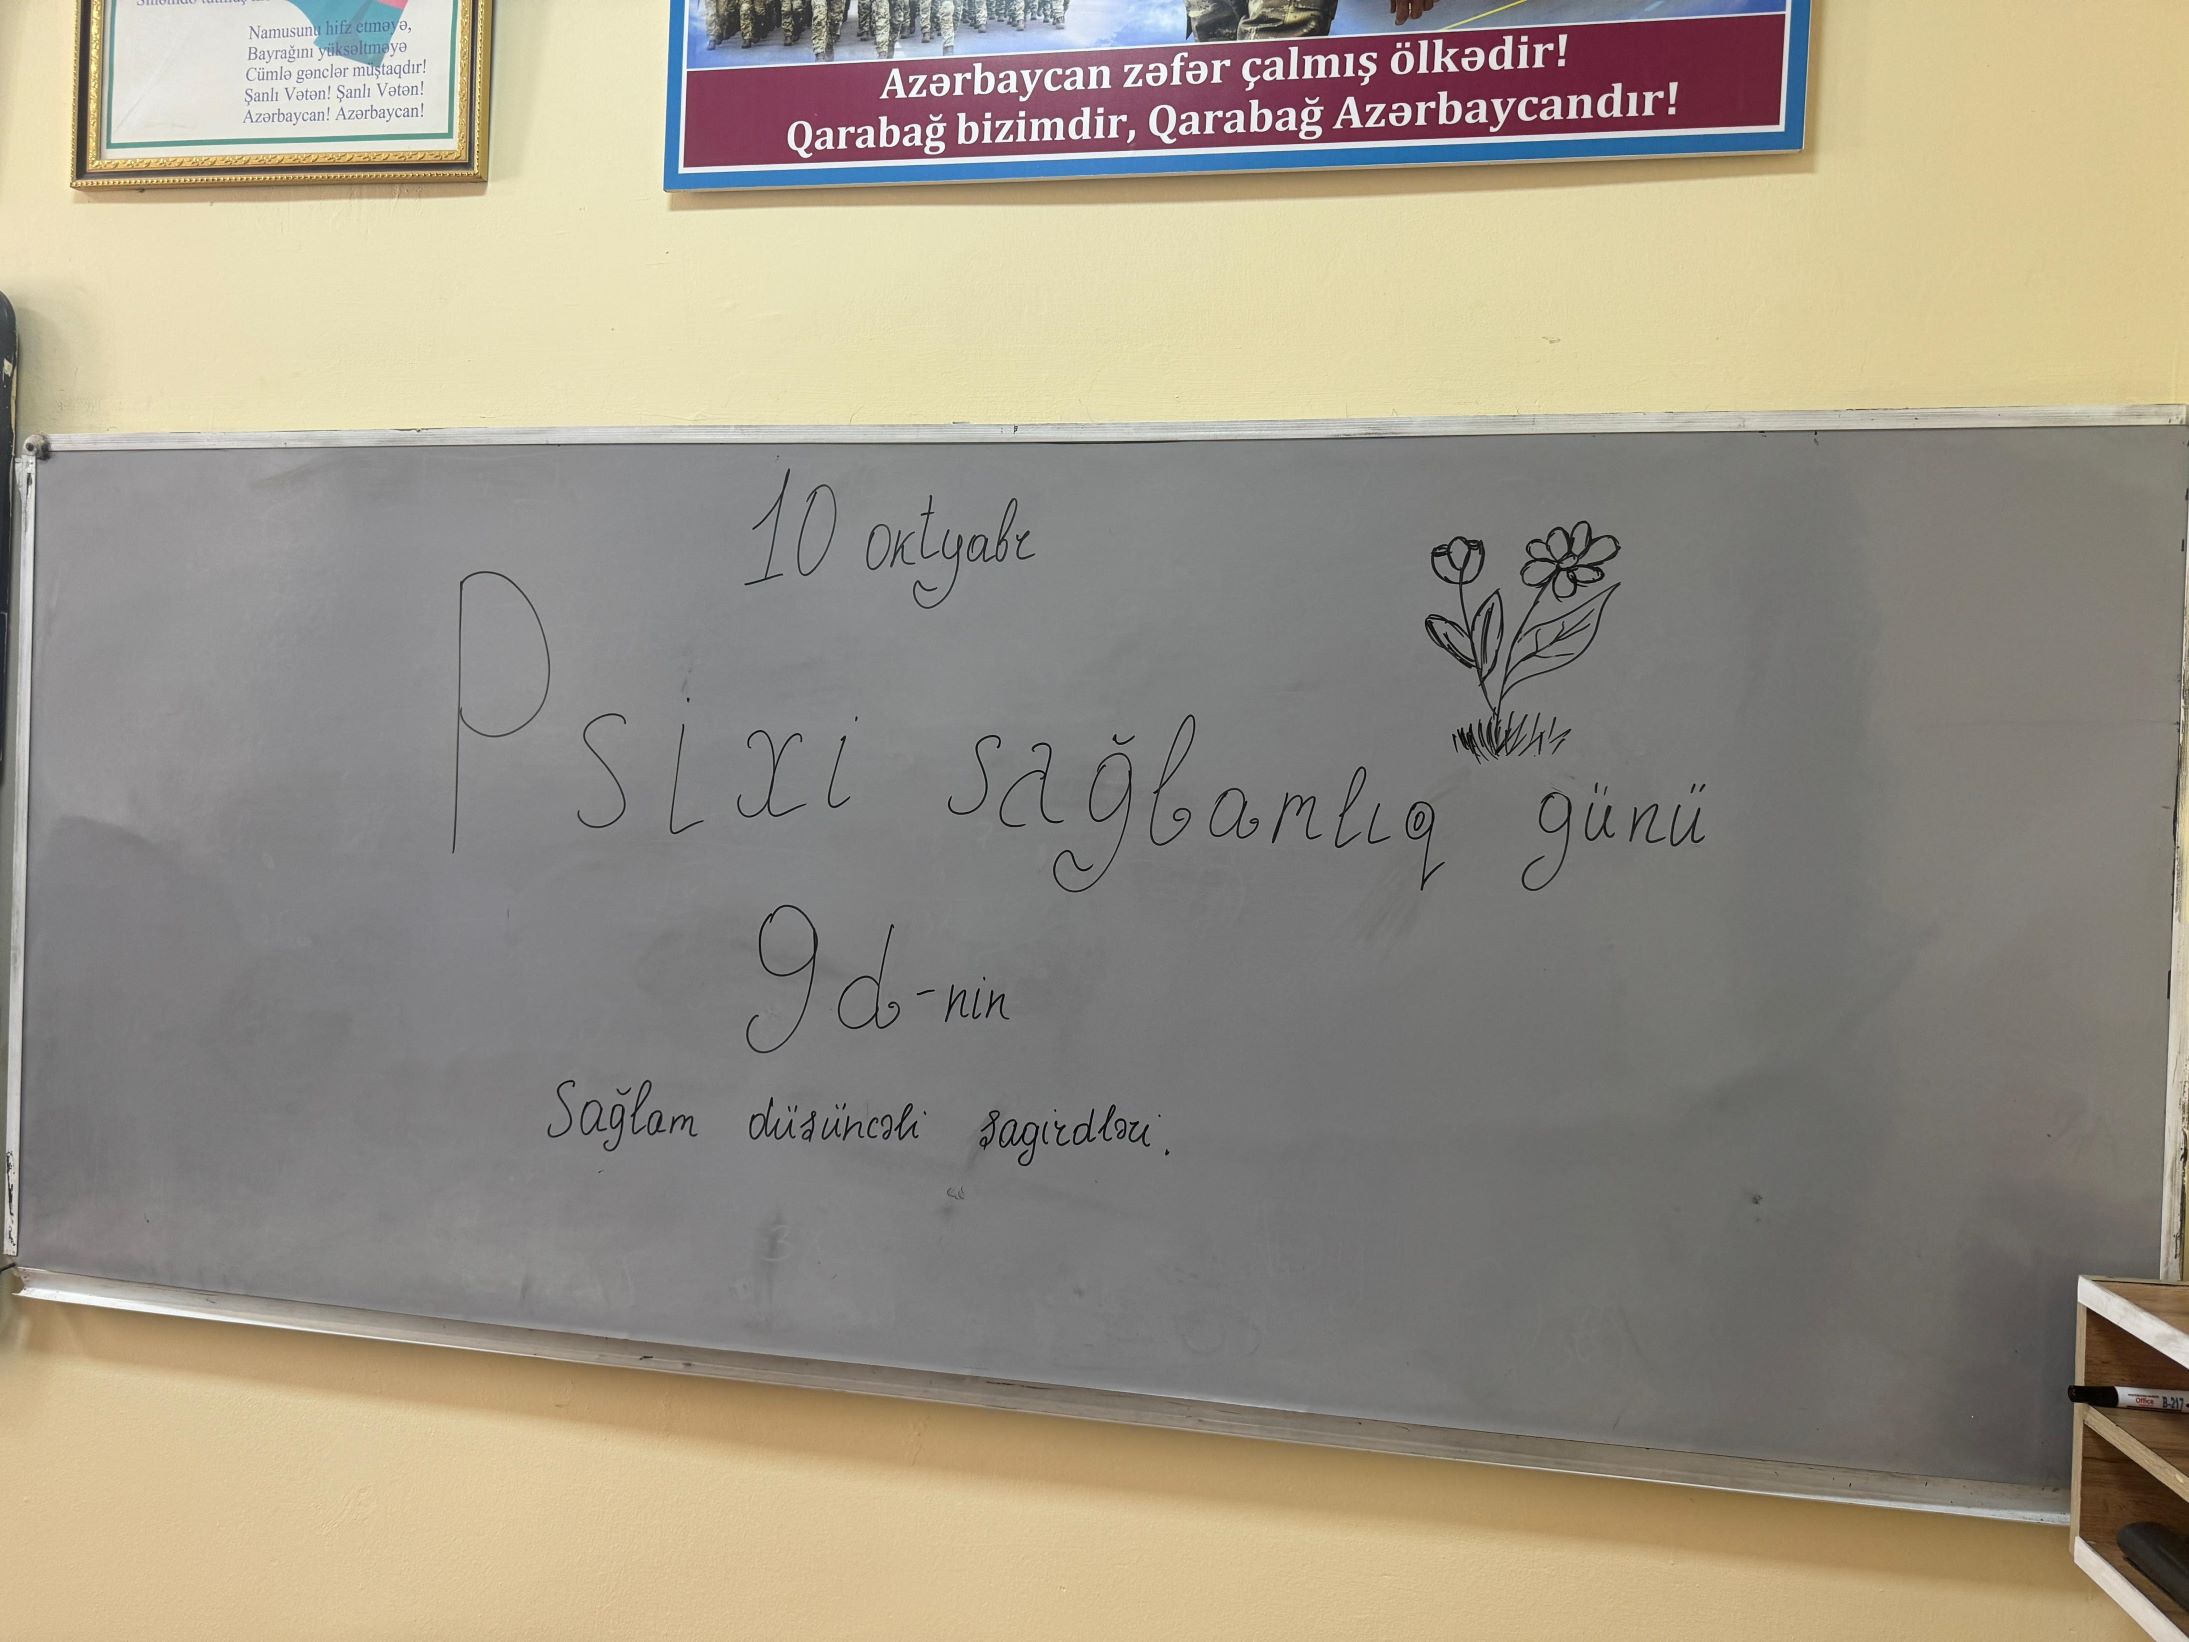 Namusunu hifz etməyə,
Bayrağını yüksəltməyə
Cümlə gənclər müştaqdır!
Şanlı Vətən! Şanlı Vətən!
Azərbaycan! Azərbaycan!
Azərbaycan zəfər çalmış ölkədir!
Qarabağ bizimdir, Qarabağ Azərbaycandır!
10 oktyabr
Psixi sağlamlıq günü
9d-nin
Sağlam düşüncəli şagirdləri.
Office
B-217